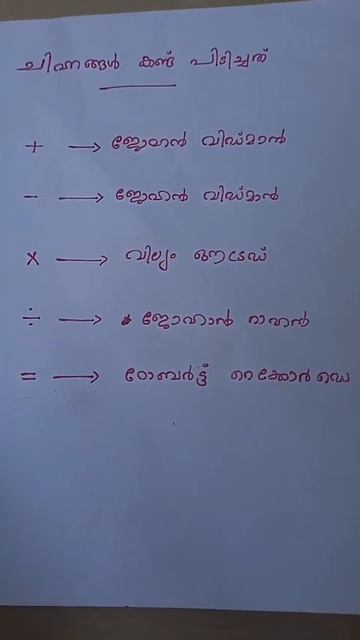 ചിഹ്നങ്ങൾ കണ്ട് പിടിച്ചത്
+ → ജോഹൻ വിഡ്മാൻ
- → ജോഹൻ വിഡ്മാൻ
× → വില്യം ഔട്ടേഡ്
÷ → ജോഹാൻ റാഹൻ
= → റോബർട്ട് റെക്കോർഡെ